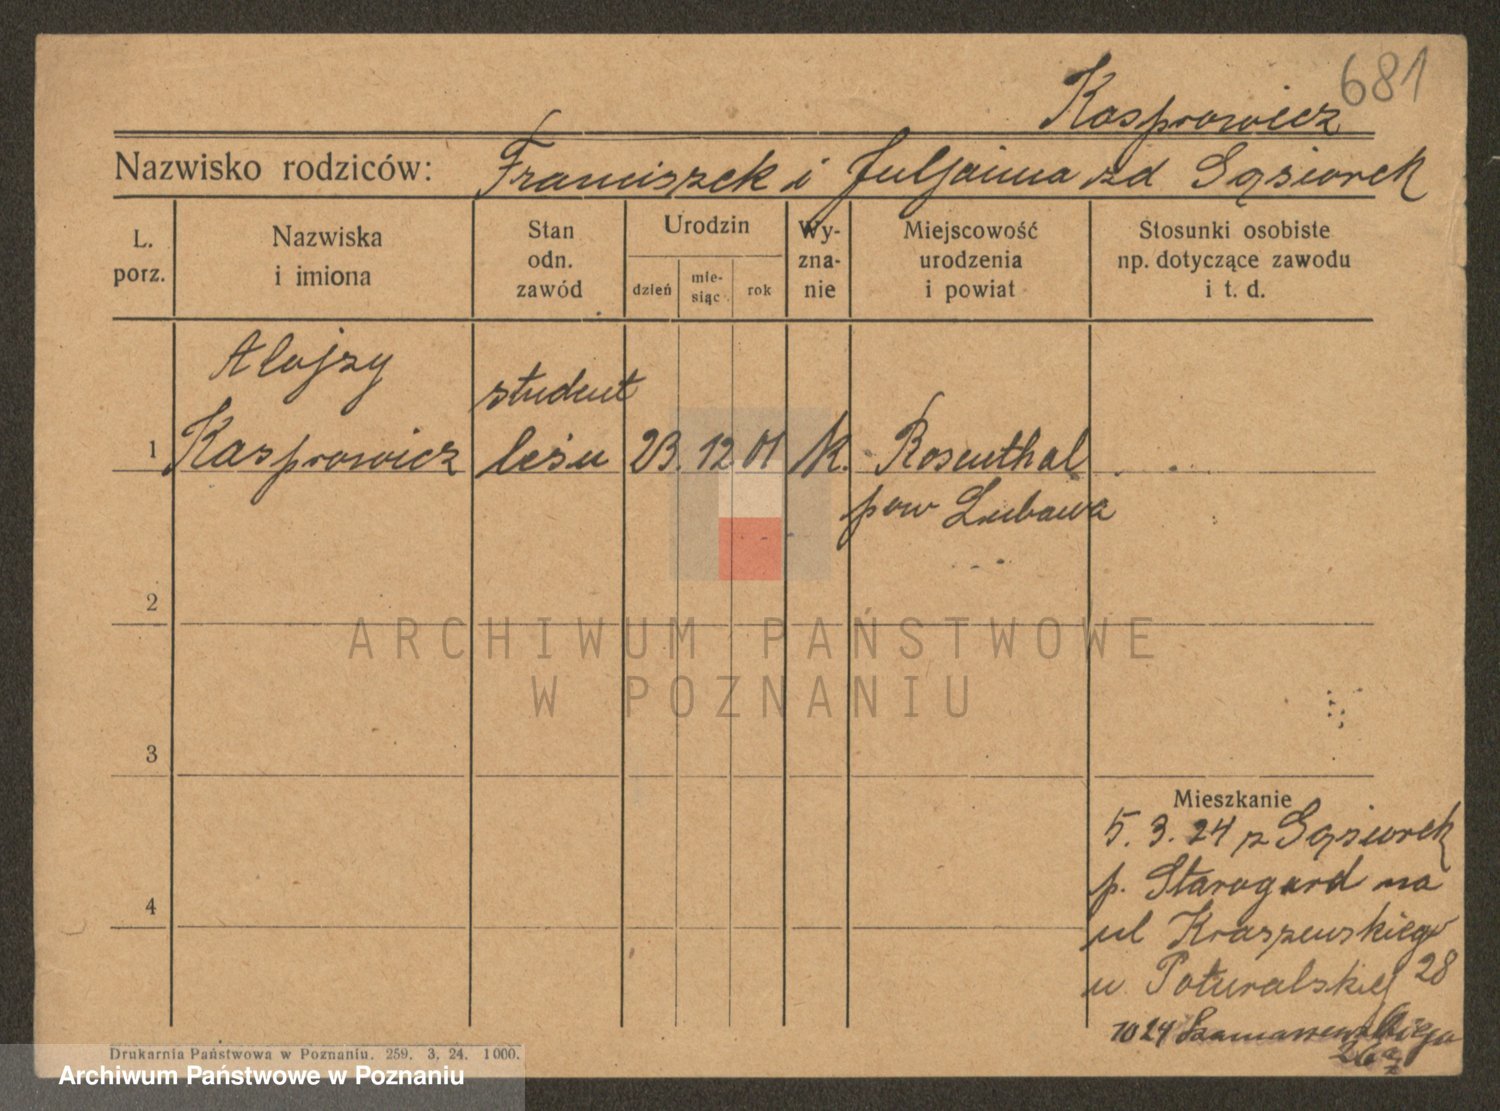 681
Kasprowicz
Nazwisko rodziców: Franciszek i Juljanna zd Gąsiorek
L. porz.
Nazwiska i imiona
Stan odn. zawód
Urodzin
dzień
mie-siąc
rok
Wy-zna-nie
Miejscowość urodzenia i powiat
Stosunki osobiste np. dotyczące zawodu i t. d.
Alojzy
student
1 Kasprowicz leśn 23. 12 01 k. Rosenthal
pow Lubawa
2
ARCHIWUM PAŃSTWOWE
W POZNANIU
3
Mieszkanie
5. 3. 24 z Gąsiorek
p. Starogard na
4
ul Kraszewskiego
u Poturalskiej 28
10 24
Drukarnia Państwowa w Poznaniu. 259. 3, 24. 1000.
Archiwum Państwowe w Poznaniu